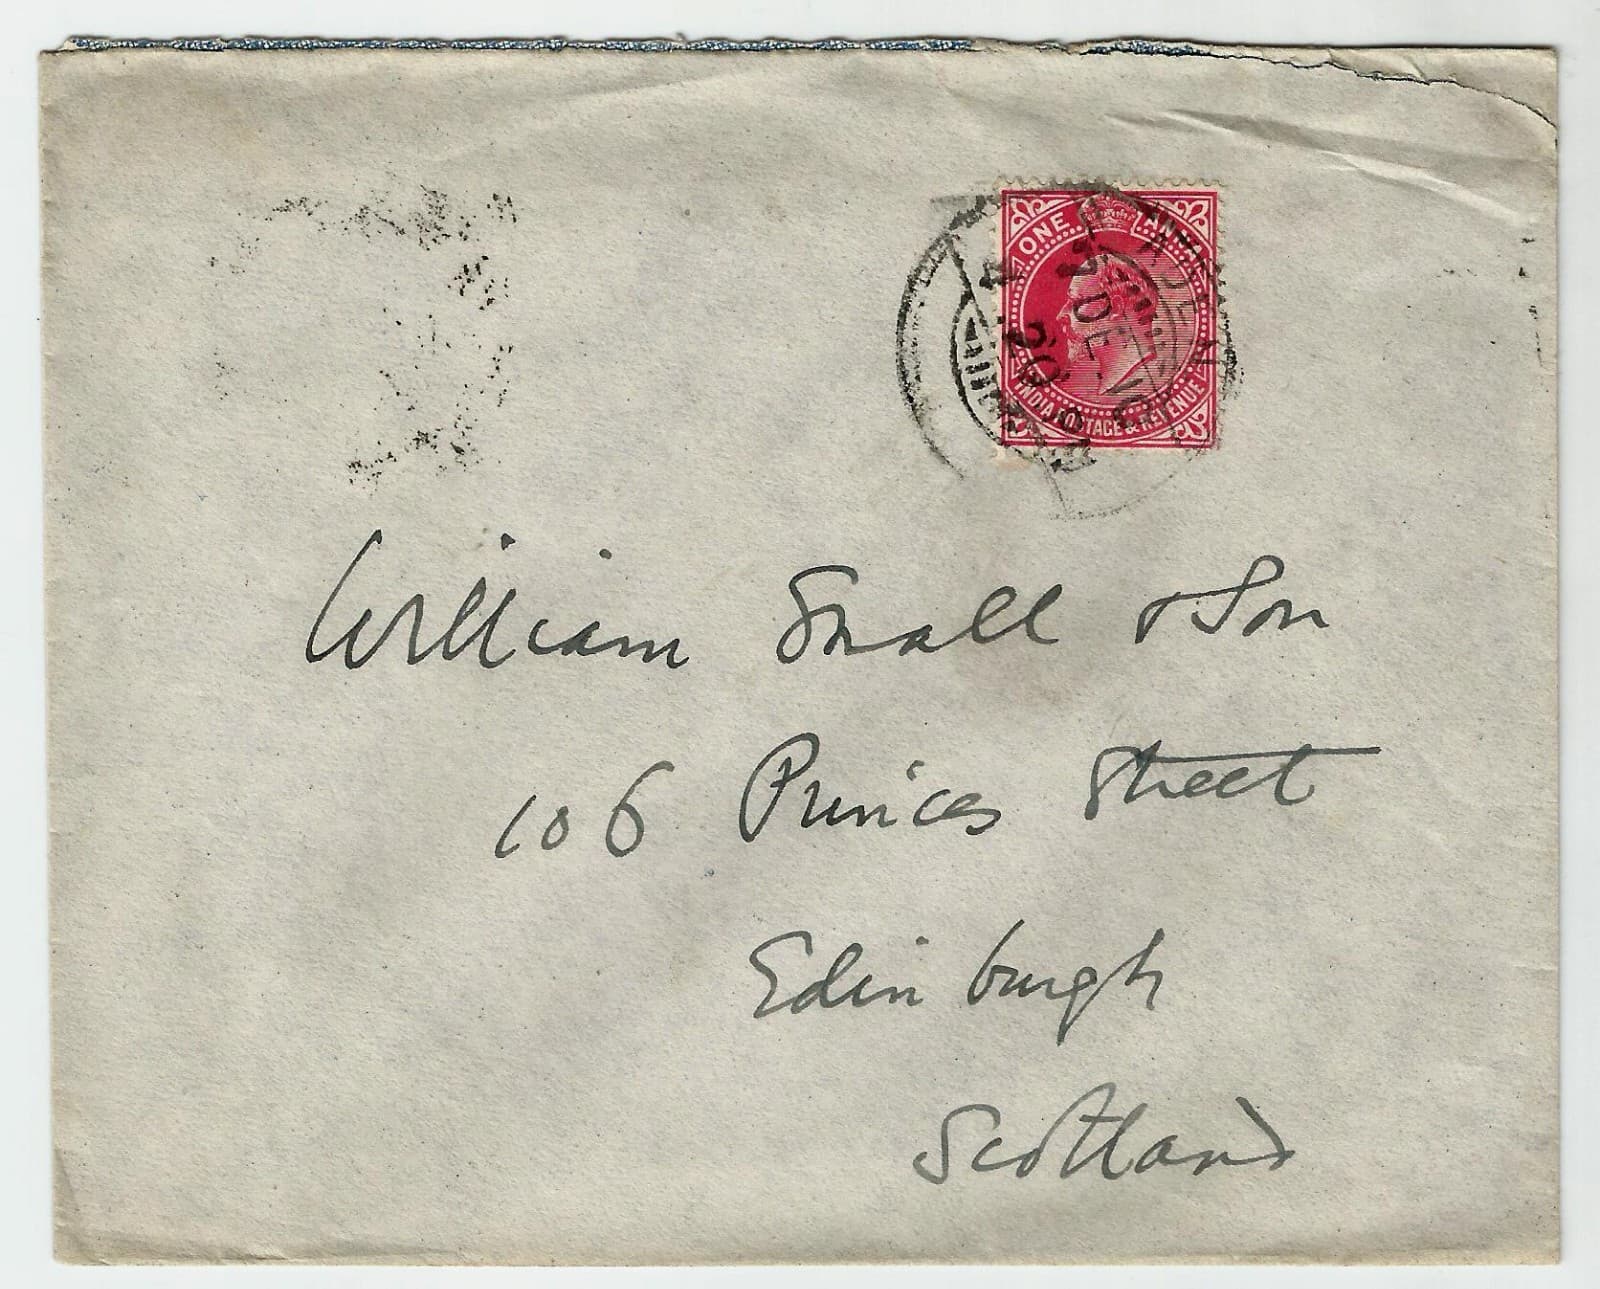 ONE ANNA
INDIA POSTAGE & REVENUE
ADEN
DE
William Small & Son
106 Princes Street
Edinburgh
Scotland